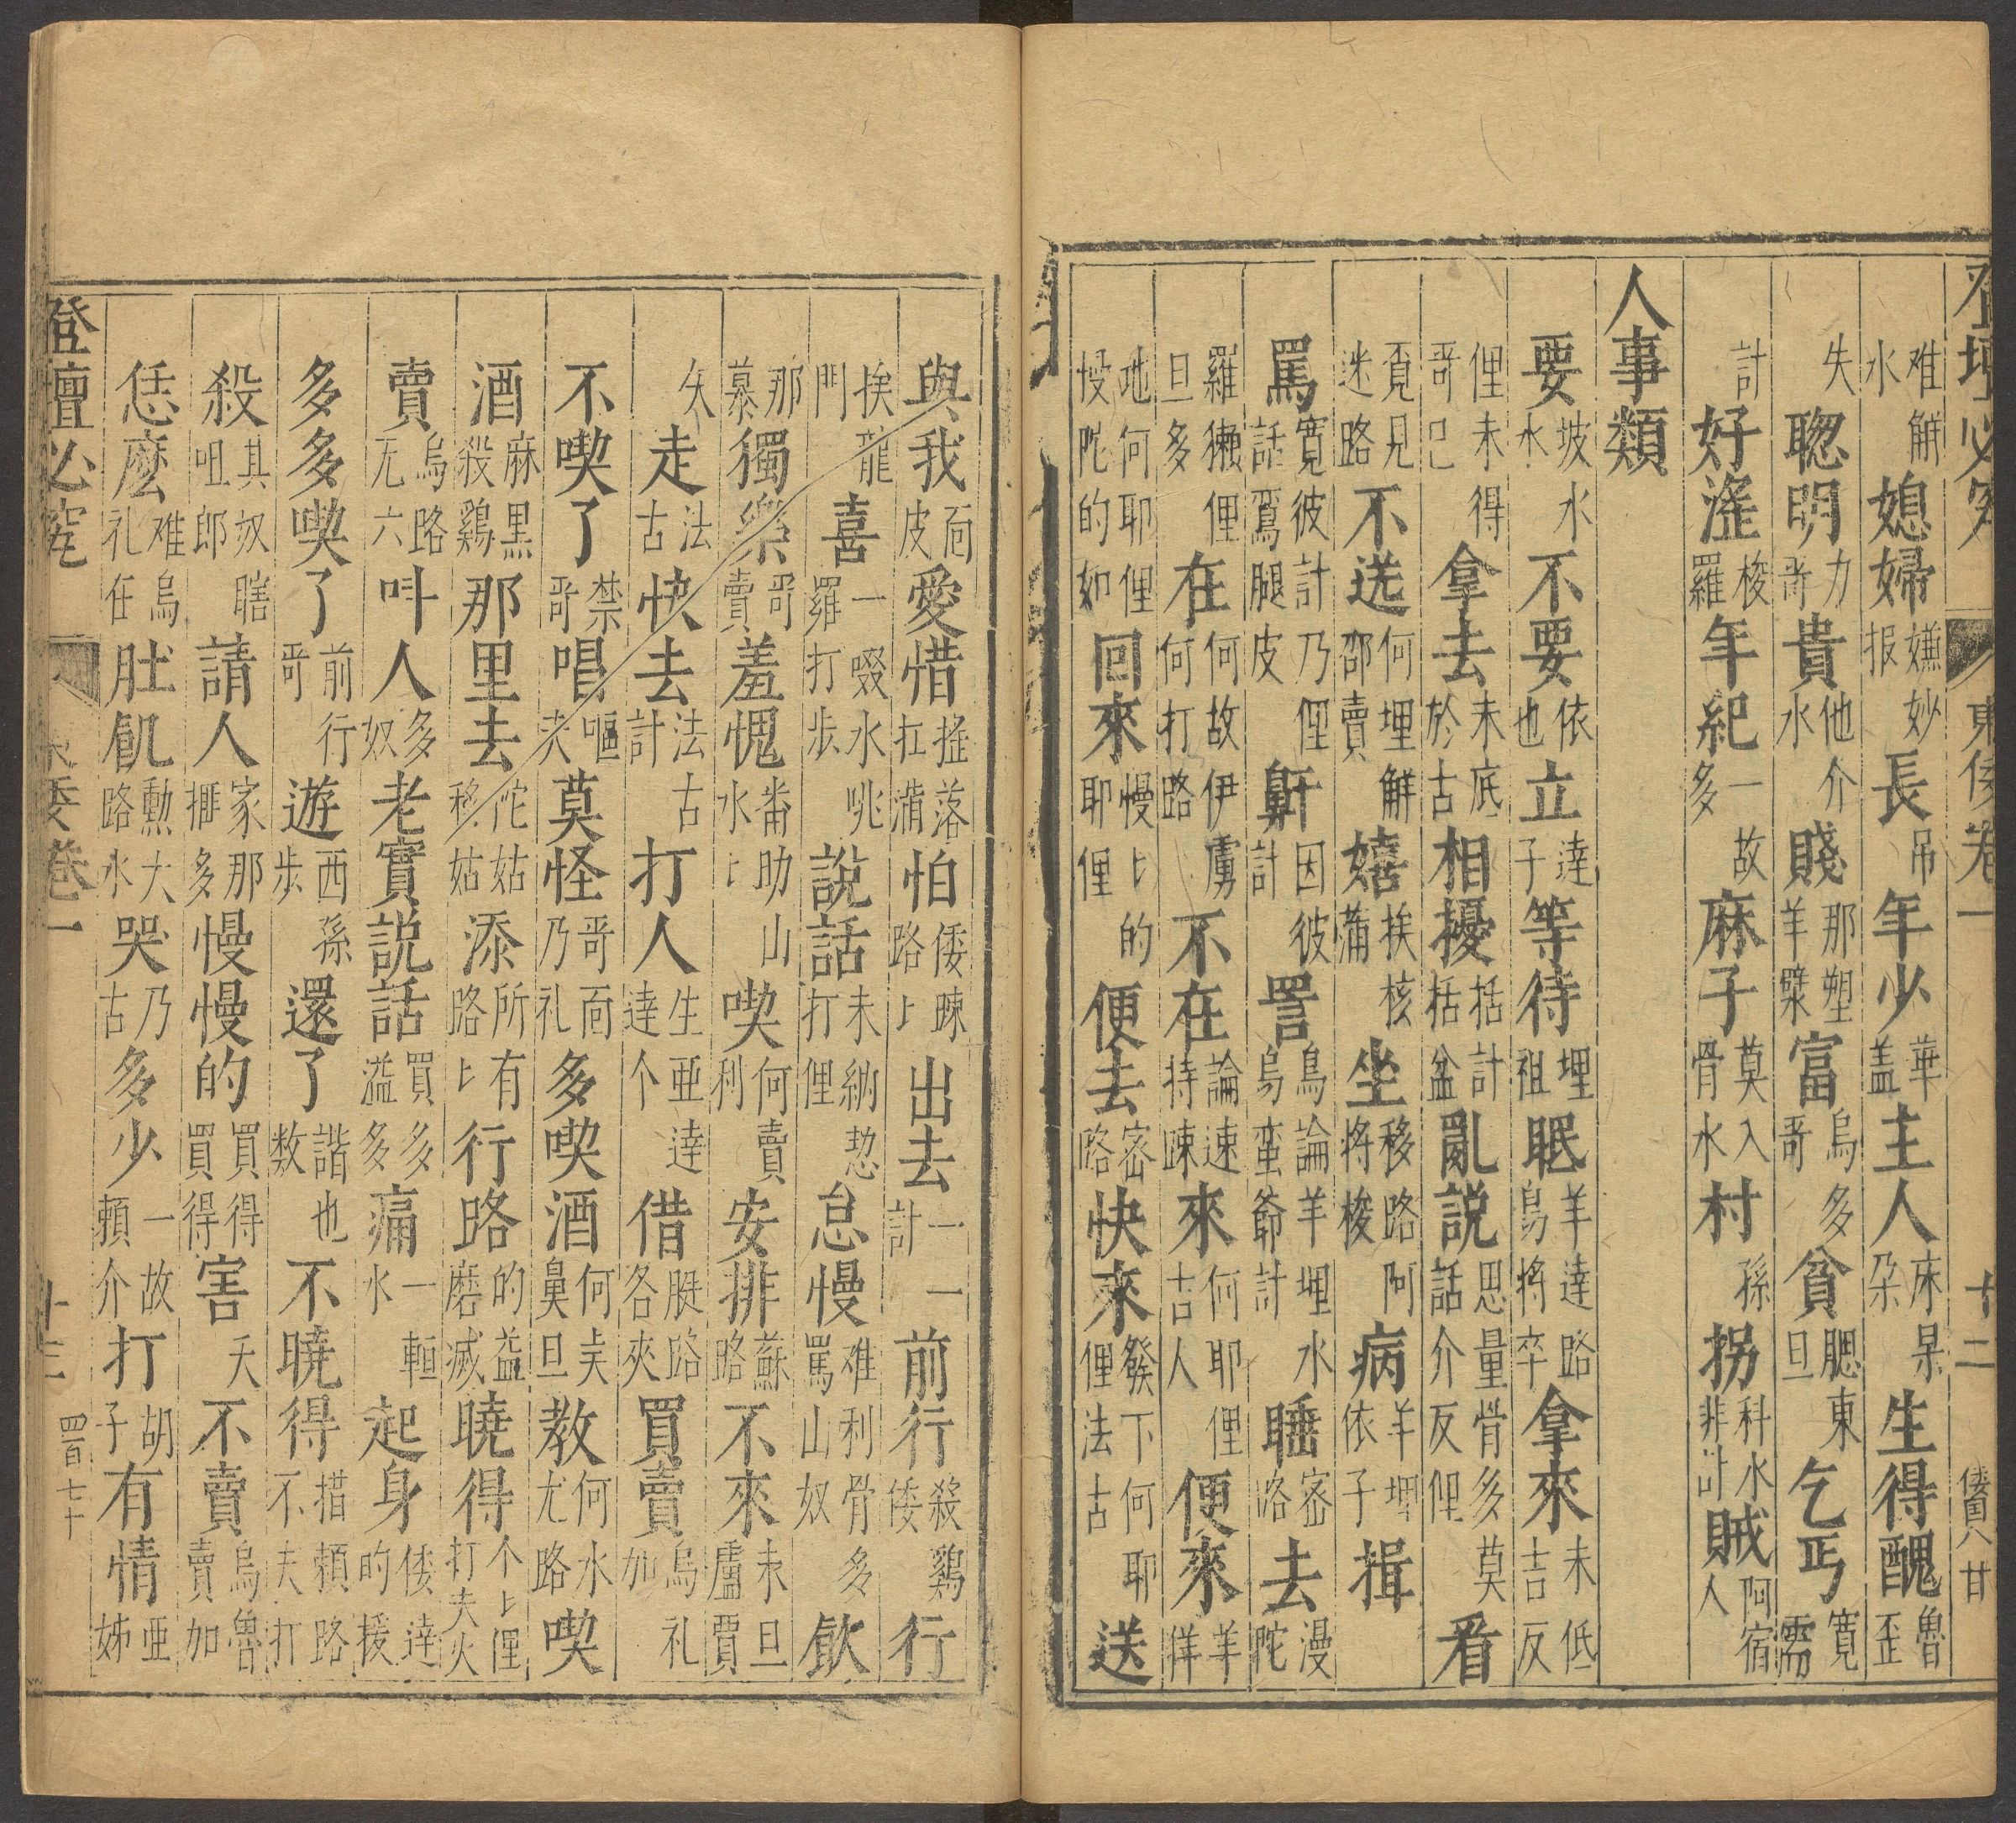 登壇必究 東倭卷一 十二 倭百八 廿
难觧水 媳婦 嫌妙报 長 吊 年少 華盖 主人 床杲朶 生得醜 魯歪
失 聦明 力哥 貴 他介水 賤 那塑羊檗 富 烏多哥 貧 腮東旦 乞丐 寛需
計 好漄 梭羅 年紀 一故多 麻子 莫入骨水 村 孫 拐 科水非計 賊 阿宿人
人事類
要 坡水水 不要 依也 立 達子 等待 埋祖 眠 羊達路烏将卒 拿來 未低吉反
俚未得哥已 拿去 未底於古 相擾 括計括盆 亂説 思量骨多莫話介反俚 看
覔見迷路 不送 何埋觧卲賣 嬉 挨核蒲 坐 移路阿将梭 病 羊埋依子 揖
罵 寛彼計乃俚話鴛腿皮 鼾 因彼計 詈 鳥論羊埋水烏蛮爺計 睡 密路 去 漫陀
羅獺俚旦多 在 何故伊虜何打路 不在 論速持疎 來 何耶俚古人 便來 羊佯
地何耶俚授陀的如 回來 慢〻的耶俚 便去 密路 快來 發下何耶俚法古 送
與我 靣皮 愛惜 摇落扛蒲 怕 倭疎路〻 出去 一一計 前行 殺鷄倭 行
挨龍門 喜 一啜水咷羅打步 說話 未納惒打俚 怠慢 难利骨多罵山奴 飲
那慕 獨樂 哥賣 羞愧 畨助山水〻 喫 何賣利 安排 蘇路 不來 未旦盧賈
失 走 法古 快去 法古計 打人 生亜達達个 借 艇路各夾 買賣 烏礼加
不喫了 禁哥 唱 嘔夫 莫怪 哥靣乃礼 多喫酒 何羙鼻旦 教 何水尤路 喫
酒 麻黒殺鷄 那里去 陀姑移姑 添 所路 有〻 行路 的益磨滅 曉得 个〻俚打夫火
賣 烏路无六 呌人 多奴 老實説話 買多溢多 痛 一軠水 起身 倭達的援
多多喫了 前行哥 遊 西孫步 還了 諧也数 不曉得 措頼路不夫打
殺 其奴瞎咀郎 請人 家那揶多 慢慢的 買得買得 害 夭 不賣 烏魯賣加
恁麼 难烏礼任 肚飢 勲大路水 哭 乃古 多少 一故頼介 打 胡子 有情 亜姊
登壇必究 東倭卷一 十三 四百七十